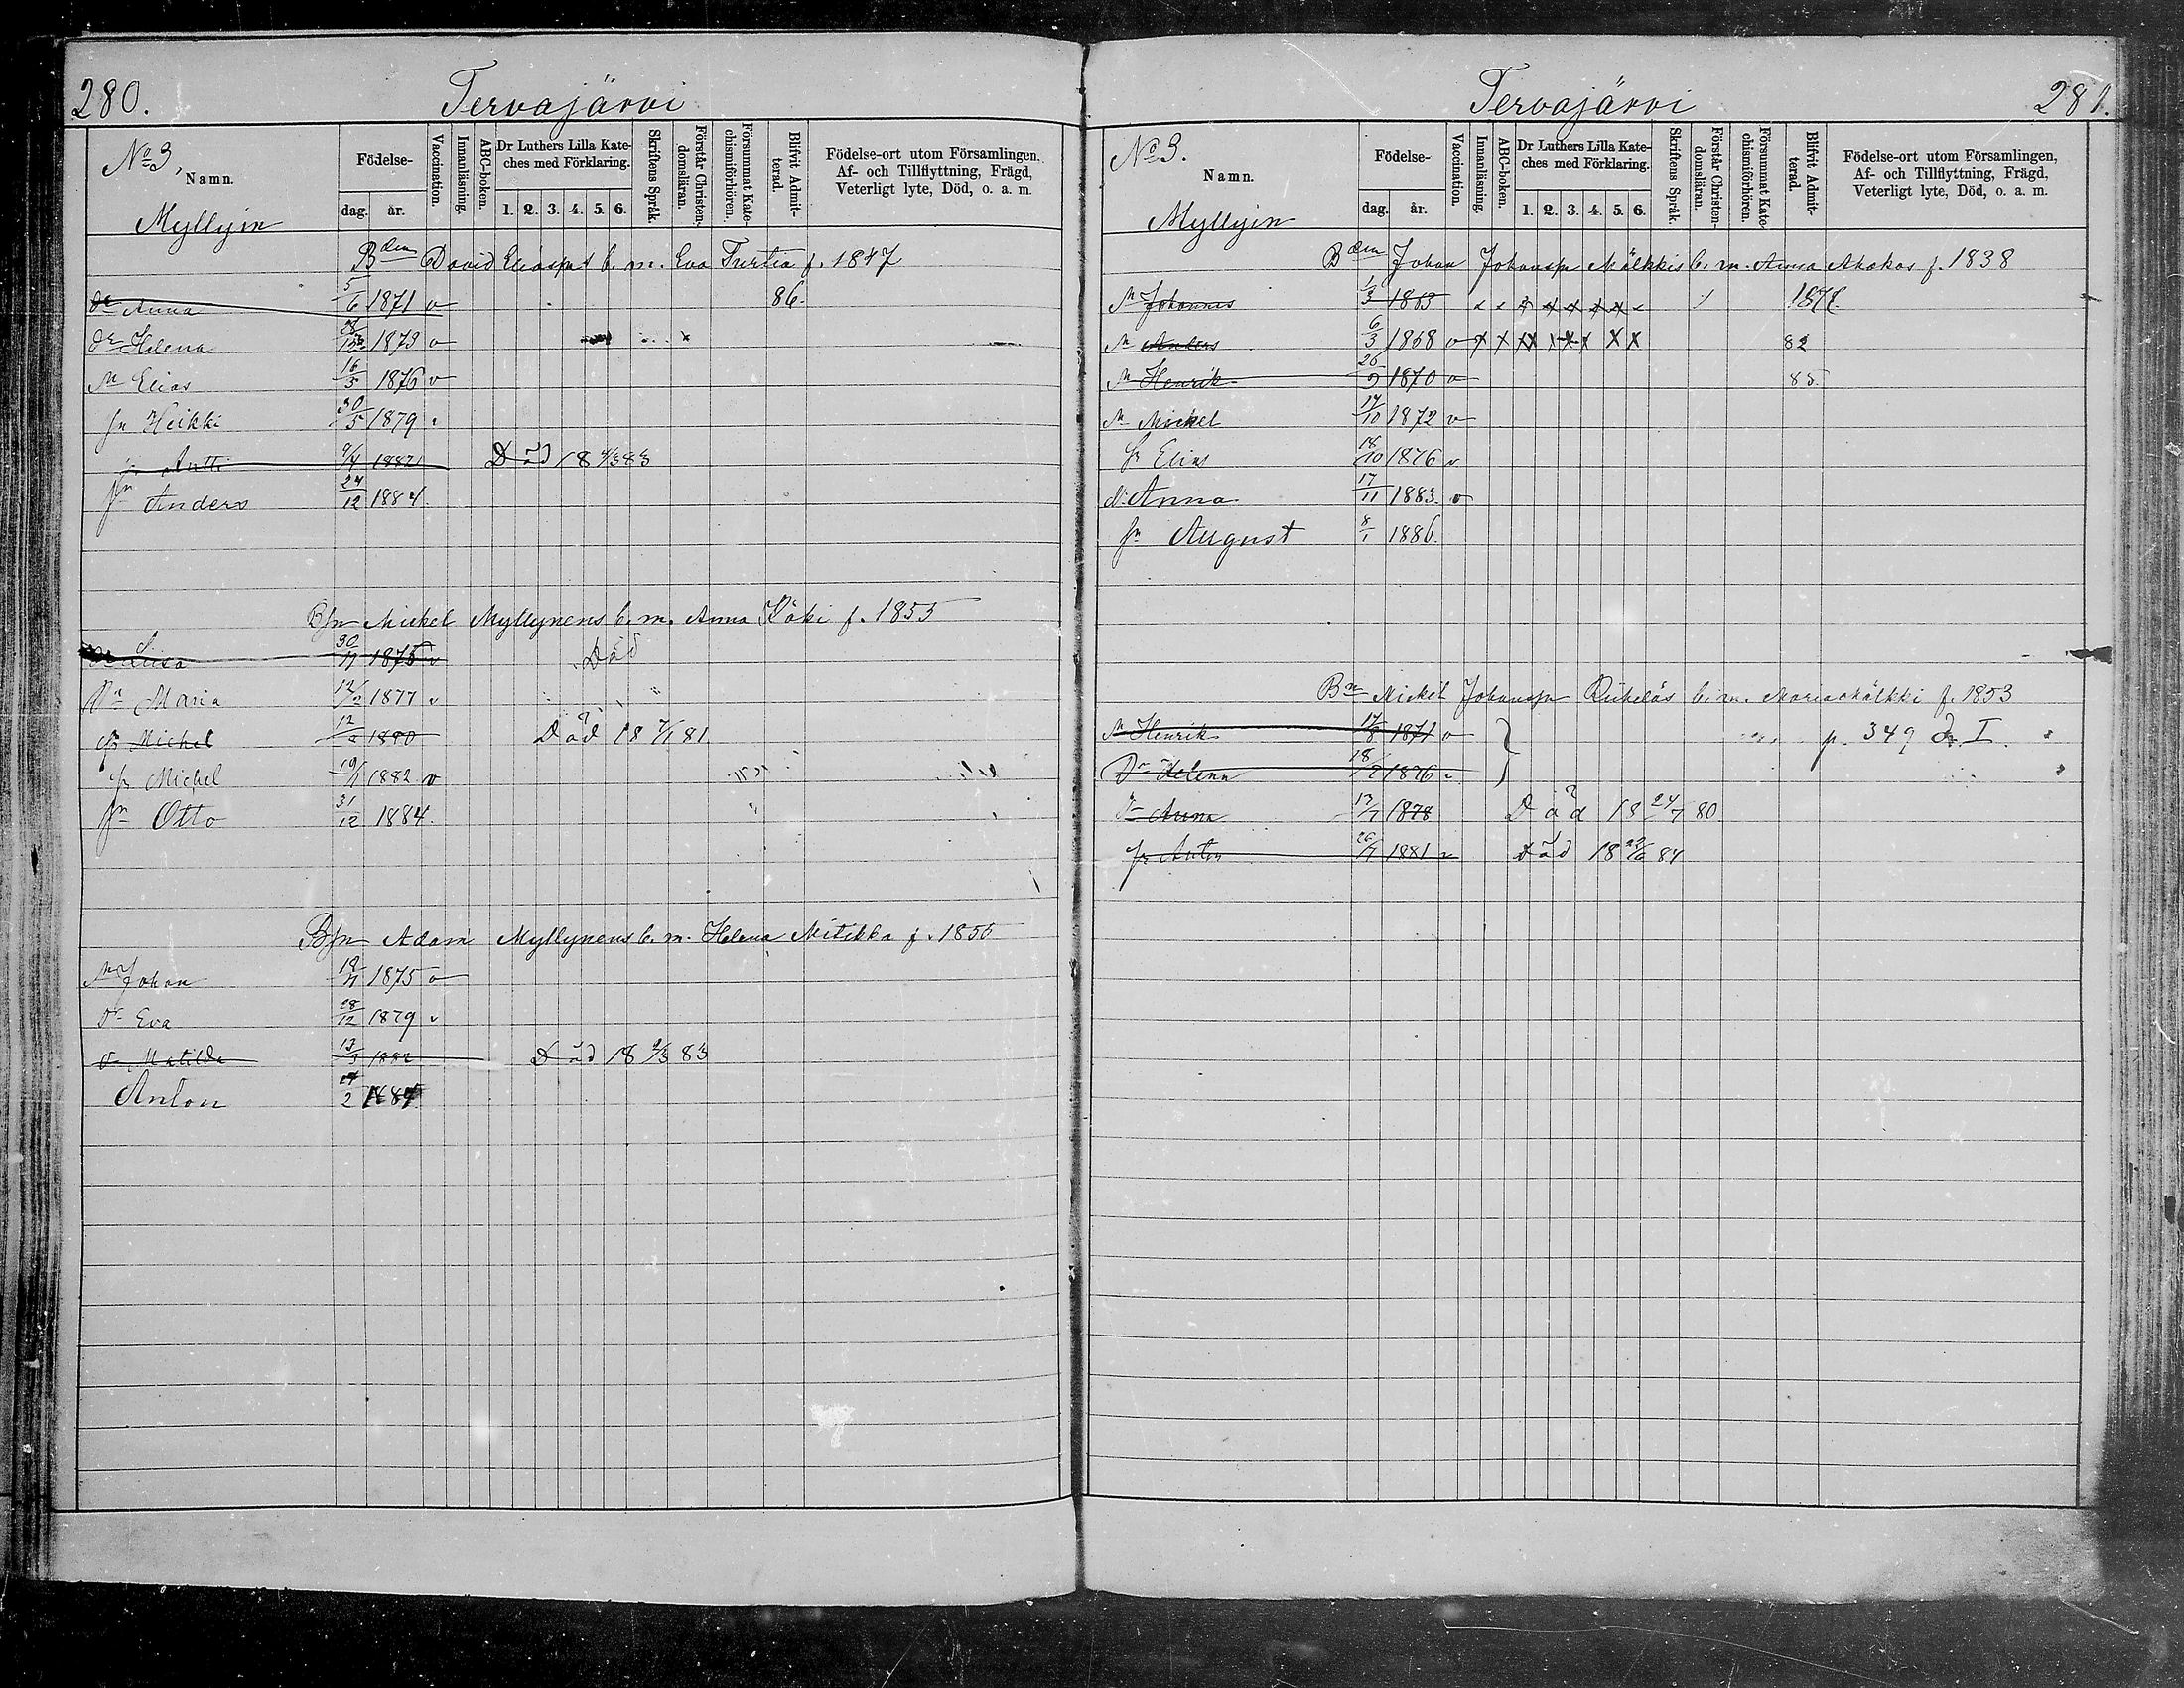 280.
Tervajärvi
No 3,
Namn.
Födelse-
dag.
år.
Vaccination.
Innanläsning.
ABC-boken.
Dr Luthers Lilla Kate-
ches med Förklaring.
1. 2. 3. 4. 5. 6.
Skriftens Språk.
Förstår Christen-
domsläran.
Försummat Kate-
chismiförhören.
Blifvit Admit-
terad.
Födelse-ort utom Församlingen,
Af- och Tillflyttning, Frägd,
Veterligt lyte, Död, o. a. m.
Myllyin
Bden David Eliaspns b. m. Eva Turtia f. 1847
dr Anna 5/6 1871 v 86.
dr Helena 1873 v
Sn Elias 16/5 1876 v
sn Heikki 30/5 1879
sn Antti 1882 Död 18 4/3 83
sn Anders 24/12 1884
Bsn Mickel Myllynens b. m. Anna f. 1855
Dr Liisa 30/11 1875 v Död
Dr Maria 12/2 1877 v
sn Michel 12/2 1880 Död 18 7/1 81
sn Michel 19/1 1882 v
sn Otto 31/12 1884.
Bsn Adam Myllynens b. m. Helena Mitikka f. 1856
Sn Johan 1875 v
Dr Eva 28/12 1879 v
dr Matilda 13/3 1882 Död 18 2/3 83
Anton 1884
Tervajärvi
281.
No 3.
Namn.
Födelse-
dag.
år.
Vaccination.
Innanläsning.
ABC-boken.
Dr Luthers Lilla Kate-
ches med Förklaring.
1. 2. 3. 4. 5. 6.
Skriftens Språk.
Förstår Christen-
domsläran.
Försummat Kate-
chismiförhören.
Blifvit Admit-
terad.
Födelse-ort utom Församlingen,
Af- och Tillflyttning, Frägd,
Veterligt lyte, Död, o. a. m.
Myllyin
Bden Johan Johanspn Mälkkis b. m. Anna Ahokas f. 1838
Sn Johannes 1/3 1863 1878
Sn Anders 6/3 1868 v x x x x x x x x 82
Sn Henrik 26/9 1870 v 85
Sn Mickel 14/10 1872 v
sn Elias 18/10 1876 v
dr Anna 17/11 1883. v
sn August 8/1 1886.
Bn Mickel Johanspn b. m. Maria Mälkki f. 1853
Sn Henrik 17/8 1871 v p. 349 I.
Dr Helena 1876 v
Dr Anna 1878 Död 18 24/7 80
sn Anton 1881 v Död 18 84